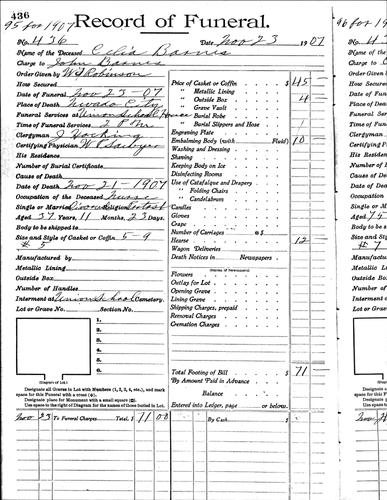 436
95 for 1907
Record of Funeral.
No. 436 Date Nov 23 1907
Name of the Deceased Celia Barnes
Charge to John Barnes
Order Given by W Robinson
How Secured
Date of Funeral Nov 23-07
Place of Death Nevada City
Funeral Services at Union School House
Time of Funeral Services 2 PM
Clergyman J Hocking
Certifying Physician
His Residence
Number of Burial Certificate
Cause of Death
Date of Death Nov 21-1907
Occupation of the Deceased Nurse
Single or Married Divorced Religion
Aged 37 Years, 11 Months, 23 Days.
Body to be shipped to
Size and Style of Casket or Coffin 5-9
# 5
Manufactured by
Metallic Lining
Outside Box
Number of Handles
Interment at Union School Cemetery.
Lot or Grave No. Section No.
1.
2.
3.
4.
5.
6.
(Diagram of Lot.)
Designate all Graves in Lot with Numbers (1, 2, 3, 4, etc.), and mark
space for this Funeral with a cross (x).
Designate place for Monument with a small square (□).
Use space to the right of Diagram for the names of those buried in Lot.
Price of Casket or Coffin $ 45
" Metallic Lining
" Outside Box 4
" Grave Vault
" Burial Robe
" Burial Slippers and Hose
Engraving Plate
Embalming Body (with Fluid) 10
Washing and Dressing
Shaving
Keeping Body on Ice
Disinfecting Rooms
Use of Catafalque and Drapery
" Folding Chairs
" Candelabrum
Candles
Gloves
Crape
Number of Carriages @ $
Hearse 12
Wagon Deliveries
Death Notices in Newspapers
(Names of Newspapers)
Flowers
Outlay for Lot
Opening Grave
Lining Grave
Shipping Charges, prepaid
Removal Charges
Cremation Charges
Total Footing of Bill $ 71
By Amount Paid in Advance
Balance
Entered into Ledger, page or below.
Nov 23 To Funeral Charges Total, $ 71 00 By Cash $
96 for 19
No. 43
Name of the
Charge to
Order Given
How Secured
Date of Fun
Place of Dea
Funeral Ser
Time of Fun
Clergyman
Certifying P
His Residen
Number of B
Cause of Dea
Date of Dea
Occupation
Single or Ma
Aged 75
Body to be s
Size and Sty
# 7
Manufacture
Metallic Lin
Outside Box
Number of H
Interment at
Lot or Grave
(Diagram
Designate
space for this
Designate
Use space